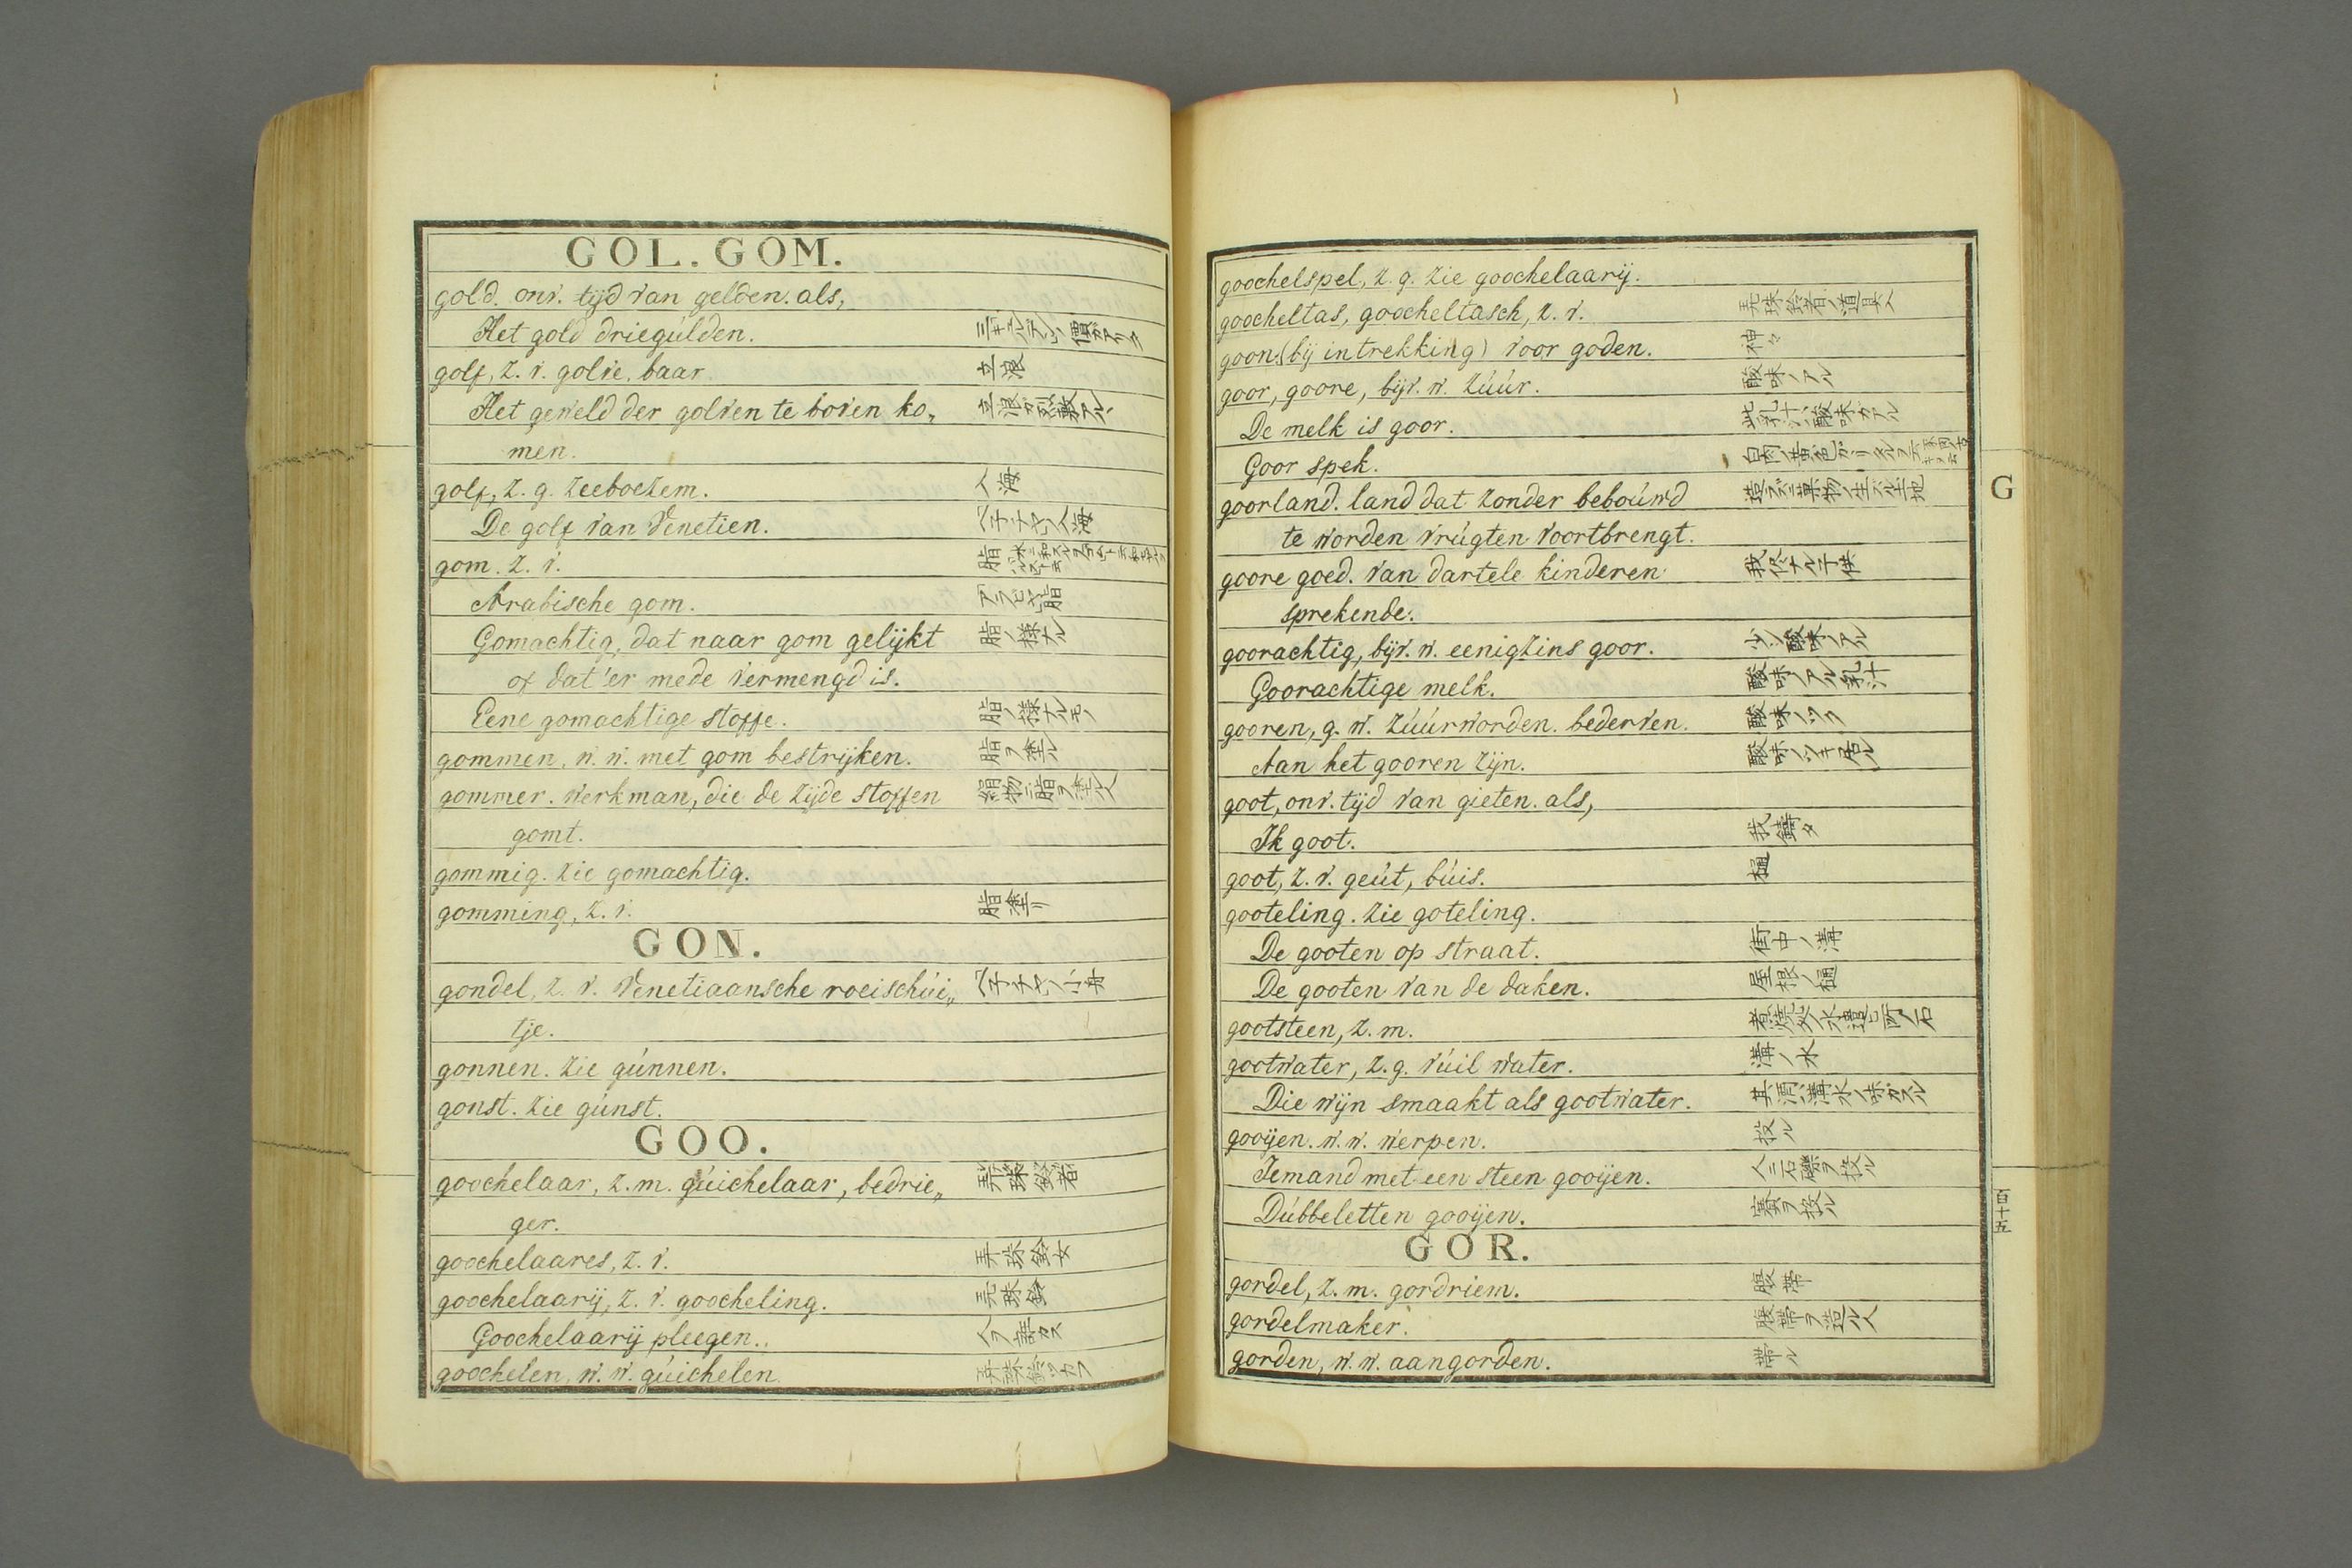 GOL. GOM.
gold. onv. tijd van gelden. als,
Het gold driegúlden.
golf, z. v. golve, baar 立浪
Het geweld der golven te boven ko„
men.
golf, z. g. zeeboezem. 入海
De golf van Venetien. 入海
gom. z. v. 脂
Arabische gom. アラビヤノ脂
Gomachtig, dat naar gom gelijkt 脂ノ様ナル
of dat 'er mede vermengd is.
Eene gomachtige stoffe. 脂ノ様ナルモノ
gommen, w. w. met gom bestrijken. 脂ヲ塗ル
gommer. werkman, die de zijde stoffen 絹物ニ脂ヲ塗ル人
gomt.
gommig. zie gomachtig.
gomming, z. v. 脂塗リ
GON.
gondel, z. v. Venetiaansche roeischúi„
tje.
gonnen. zie gúnnen.
gonst. zie gúnst.
GOO.
goochelaar, z. m. gúichelaar, bedrie„ 弄珠鈴者
ger.
goochelaares, z. v. 弄珠鈴女
goochelaarij, z. v. goocheling. 弄珠鈴
Goochelaarij pleegen.
goochelen, w. w. gúichelen
goochelspel, z. g. zie goochelaarij.
goocheltas, goocheltasch, z. v. 弄珠鈴者ノ道具入
goon. (bij intrekking) voor goden. 神々
goor, goore, bijv. w. zúúr. 酸味ノアル
De melk is goor. 此乳汁ハ酸味ガアル
Goor spek.
goorland. land dat zonder beboúwd
te worden vrúgten voortbrengt.
goore goed. van dartele kinderen 我侭ナル子供
sprekende.
goorachtig, bijv. w. eenigzins goor. 少シ酸味ノアル
Goorachtige melk. 酸味ノアル乳汁
gooren, g. w. zúúrworden. bederven. 酸味ノツク
Aan het gooren zijn. 酸味ノツキ居ル
goot, onv. tijd van gieten. als,
Ik goot. 我鑄タ
goot, z. v. geút, búis. 樋
gooteling. zie goteling.
De gooten op straat. 街中ノ溝
De gooten van de daken. 屋根ノ樋
gootsteen, z. m.
gootwater, z. g. vúil water. 溝ノ水
Die wijn smaakt als gootwater. 其酒ハ溝水ノ味ガスル
gooijen. w. w. werpen. 投ル
Iemand met een steen gooijen. 人ニ石礫ヲ投ル
Dúbbeletten gooijen. 賽ヲ投ル
GOR.
gordel, z. m. gordriem. 腹帯
gordelmaker. 腹帯ヲ造ル人
gorden, w. w. aangorden. 帯ル
G
百十五